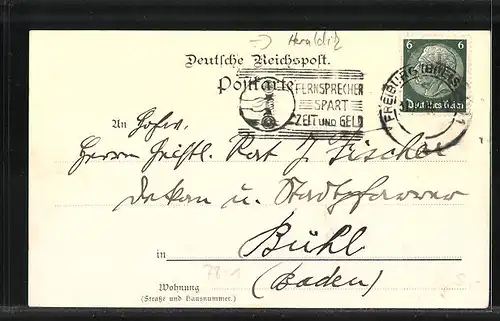 Heraldik
Deutsche Reichspost.
Postkarte
FERNSPRECHER
SPART
ZEIT UND GELD
6 6
Deutsches Reich
FREIBURG (BREISG
1
An Hochw.
Herrn Geistl. Rat J. Fischer
Dekan u. Stadtpfarrer
in Bühl
(Baden)
78-1
Wohnung
(Straße und Hausnummer.)